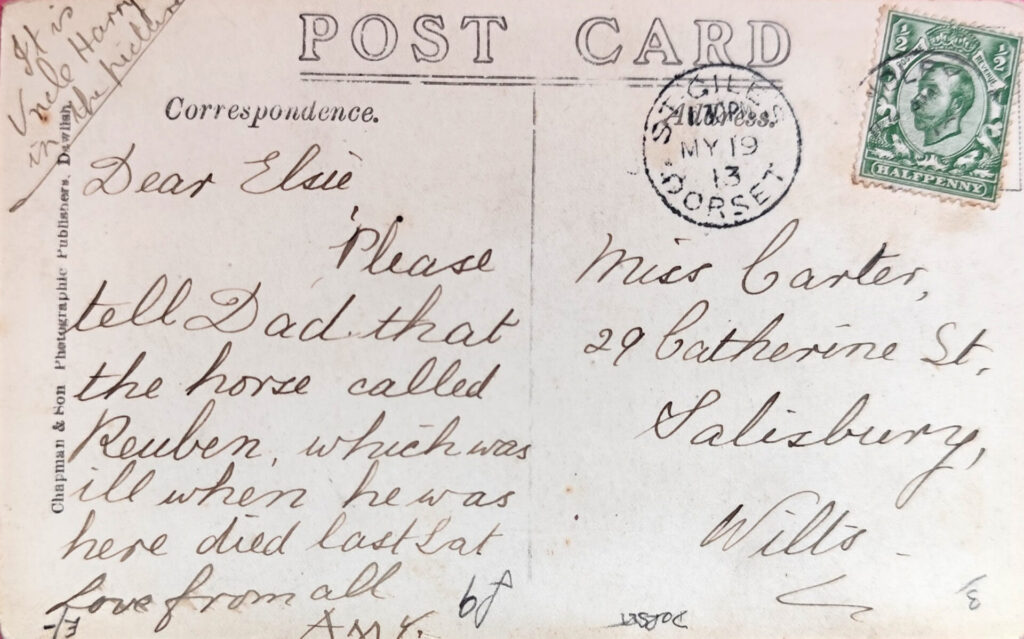 POST CARD
It is
Uncle Harry
in the picture
Correspondence.
Address.
Chapman & Son Photographic Publishers, Dawlish.
ST. GILES
MY 19
13
DORSET
½ ½
HALFPENNY
Dear Elsie
Please
tell Dad that
the horse called
Reuben, which was
ill when he was
here died last Sat
Love from all
Amy.
Miss Carter,
29 Catherine St,
Salisbury,
Wilts
68
Dorset